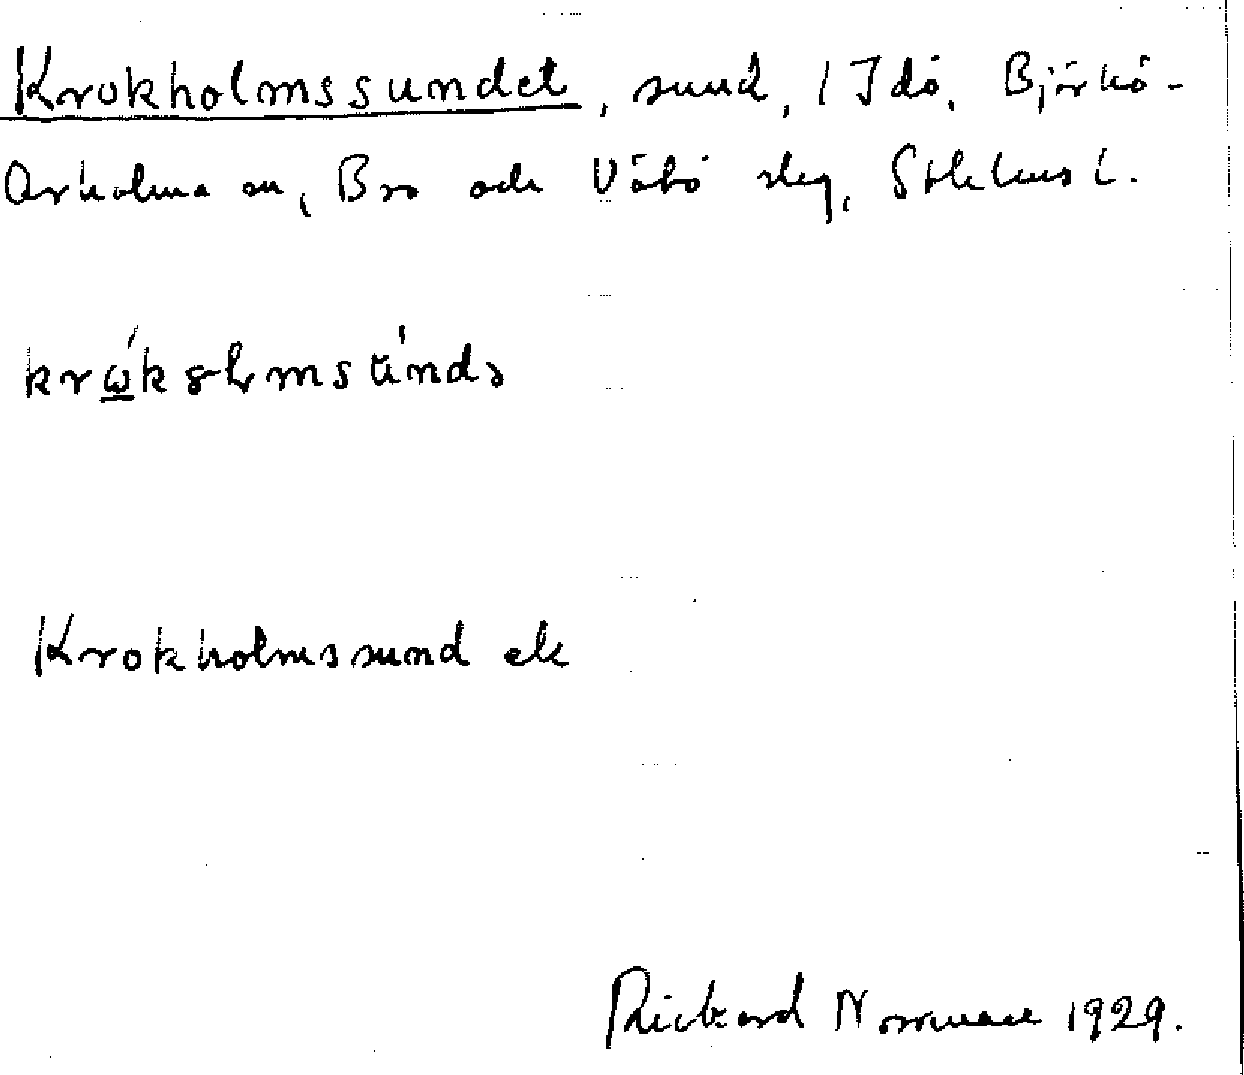 Krokholmssundet, sund, i Idö, Björkö-
Arholma sn, Bro och Vätö slag, Sthlms l.
krώ̲kɞlmsú̵ndə
Krokholmssund ek
Rickard Norrman 1929.